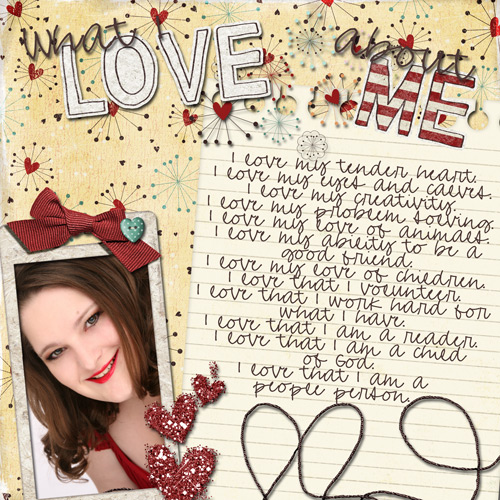 What
LOVE
about
ME
I love my tender heart.
I love my eyes and calves.
I love my creativity.
I love my problem solving.
I love my love of animals.
I love my ability to be a
good friend.
I love my love of children.
I love that I volunteer.
I love that I work hard for
what I have.
I love that I am a reader.
I love that I am a child
of God.
I love that I am a
people person.